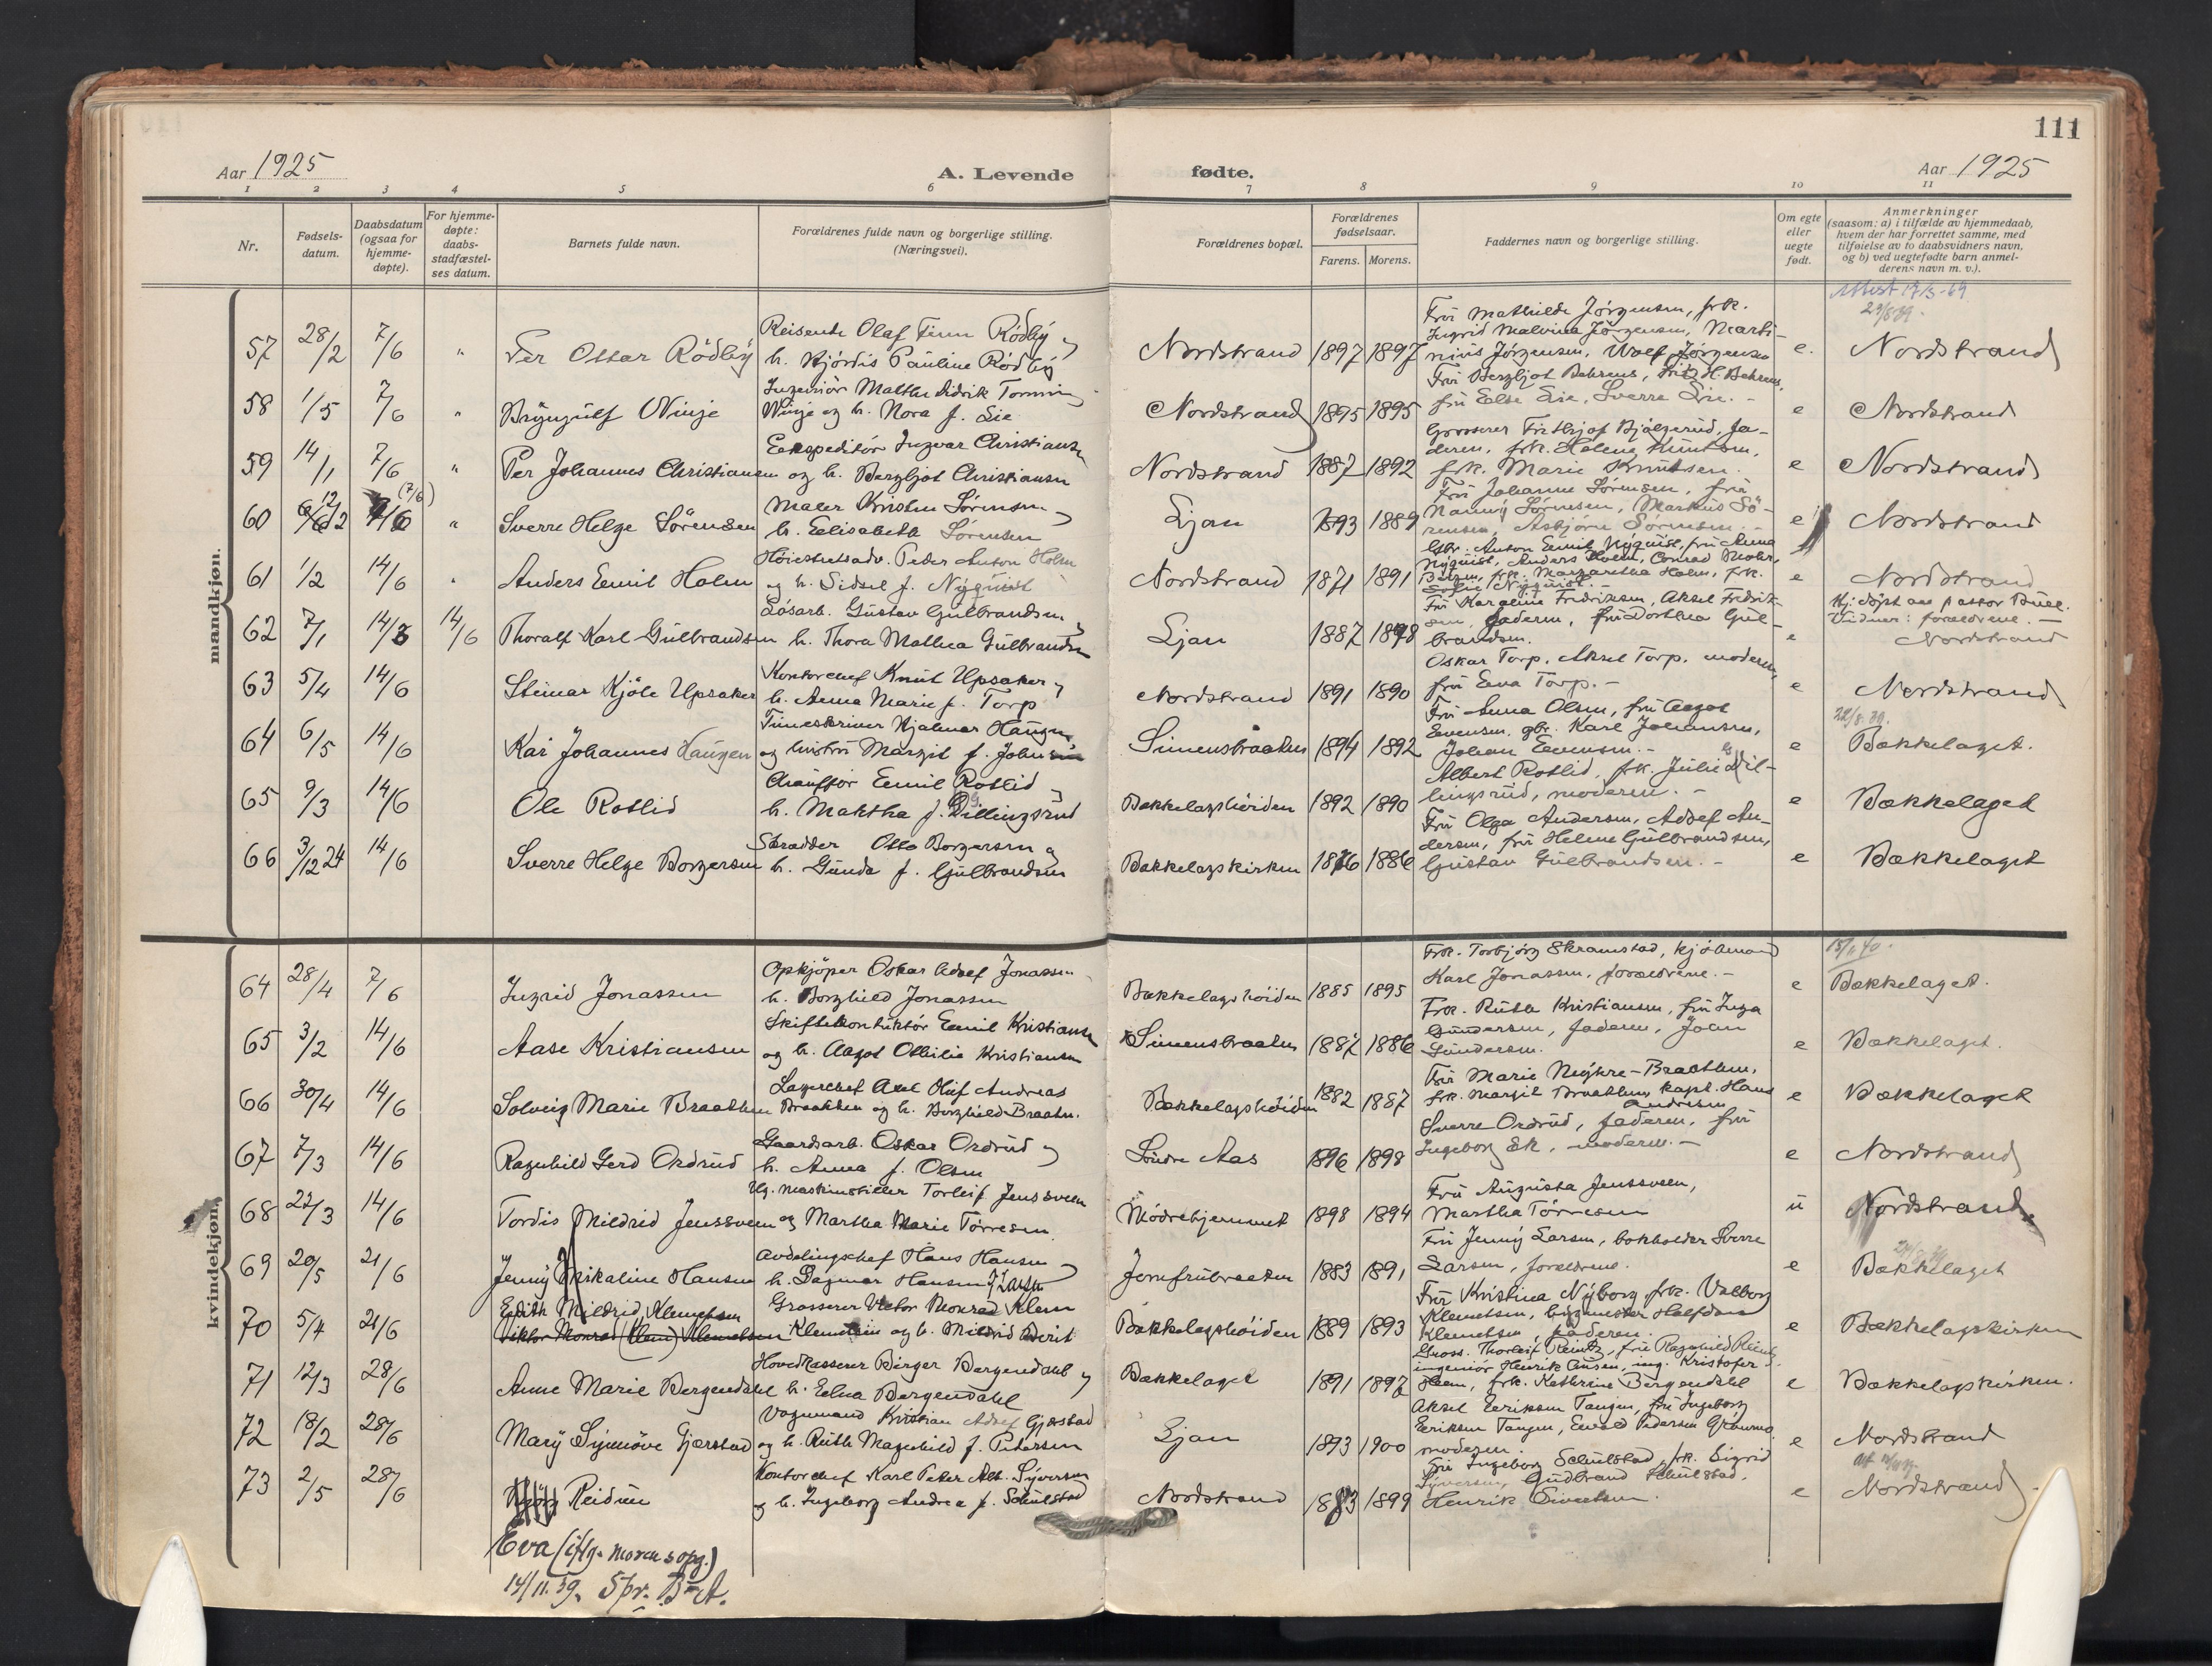 111
Aar 1925
A. Levende
fødte.
Aar 1925
1 2 3 4 5 6 7 8 9 10 11
Nr.
Fødsels-
datum.
Daabsdatum
(ogsaa for
hjemme-
døpte).
For hjemme-
døpte:
daabs-
stadfæstel-
ses datum.
Barnets fulde navn.
Forældrenes fulde navn og borgerlige stilling.
(Næringsvei).
Forældrenes bopæl.
Forældrenes
fødselsaar.
Farens. Morens.
Faddernes navn og borgerlige stilling.
Om egte
eller
uegte
født.
Anmerkninger
(saasom: a) i tilfælde av hjemmedaab,
hvem der har forrettet samme, med
tilføielse av to daabsvidners navn,
og b) ved uegtefødte barn anmel-
derens navn m. v.).
mandkjøn.
57 28/2 7/6 " Per Ottar Rödbÿ
Reisende Olaf Finn Rödbÿ
h. Hjördis Pauline Rödbÿ
Nordstrand 1897 1897
Fru Mathilde Jörgensen, frk.
Ingrid Malvina Jörgensen, Marti-
nius Jörgensen, Wolf Jörgensen
e. Nordstrand
58 1/5 7/6 " Brÿnjulf Winje
Winje og h. Nora f. Lie
Nordstrand 1895 1895
Fru Bergljot Behrens, Fritz H. Behrens,
fru Else Lie, Sverre Lie. -
e Nordstrand
59 14/1 7/6 " Per Johannes Christiansen
Ekspeditör Ingvar Christiansen
og h. Bergljot Christiansen
Nordstrand 1887 1892
Grosserer Fridtjof Bjälgerud, fa-
deren, frk. Helene Knutsen,
frk. Marie Knutsen.
e Nordstrand
60 (7/6) " Sverre Helge Sörensen
Maler Kristen Sörensen
h. Elisabeth Sörensen
Ljan 1893 1889
Fru Johanne Sörensen, fru
Nannÿ Sörensen, Markus Sö-
rensen, Asbjörn Sörensen. -
e Nordstrand
61 1/2 14/6 " Anders Emil Holm
Höiesteretsadv. Peder Anton Holm
og h. Sidsel f. Nÿquist
Nordstrand 1871 1891
Gbr. Anton Emil Nÿquist, fru Anna
Nÿquist, Anders Holm, Conrad Mohr,
Bergen, frk. Margaretha Holm, frk.
Sofie Nÿquist. -
e Nordstrand
62 7/1 14/3 14/6 Thoralf Karl Gulbrandsen
Lösarb. Gustav Gulbrandsen
h. Thora Mathea Gulbrandsen
Ljan 1887 1898
Fru Karoline Fredriksen, Aksel Fredrik-
sen, faderen, fru Dorthea Gul-
brandsen.
e
Hj. döpt av pastor Bull.
Vidner: forældrene. -
Nordstrand
63 5/4 14/6 Steinar Kjöle Upsaker
Kontorchef Knut Upsaker
h. Anna Marie f. Torp
Nordstrand 1891 1890
Oskar Torp, Aksel Torp, moderen,
fru Eva Torp. -
e Nordstrand
64 6/5 14/6 Kai Johannes Haugen
Timeskriver Hjalmar Haugen
og hustru Margit f. Johnsen
Simensbraaten 1894 1892
Fru Anna Olsen, fru Aagot
Evensen, gbr. Karl Johansen,
Johan Evensen. -
e 22/8.39. Bækkelaget.
65 9/3 14/6 Ole Rotlid
Chaufför Emil Rotlid
h. Maktha f. Dillingsrud
Bækkelagshöiden 1892 1890
Albert Rotlid, frk. Julie Dil-
lingsrud, moderen. -
e Bækkelaget
66 3/12 24 14/6 Sverre Helge Borgersen
Skrædder Otto Borgersen og
h. Gunda f. Gulbrandsen
Bækkelagskirken 1876 1886
Fru Olga Andersen, Adolf An-
dersen, fru Helene Gulbrandsen,
Gustav Gulbrandsen. -
e Bækkelaget
kvindekjøn.
64 28/4 7/6 Ingrid Jonassen
Opkjöper Oskar Adolf Jonassen
h. Borghild Jonassen
Bækkelagshöiden 1885 1895
Frk. Torbjörg Skramstad, kjöbmand
Karl Jonassen, forældrene. -
e Bækkelaget.
65 3/2 14/6 Aase Kristiansen
Skiftekonduktör Emil Kristiansen
og h. Aagot Othilie Kristiansen
Simensbraaten 1887 1886
Frk. Ruth Kristiansen, fru Inga
Gundersen, faderen, Joan
Gundersen.
e Bækkelaget.
66 30/4 14/6 Solveig Marie Braathen
Lagerchef Axel Oluf Andreas
Braathen og h. Borghild Braaten.
Bækkelagshöiden 1882 1887
Fru Marie Nÿhre-Braathen,
frk. Margit Braathen, kapt. Hans
Andresen
e Bækkelaget
67 7/3 14/6 Ragnhild Gerd Ordrud
Gaardsarb. Oskar Ordrud
h. Anna f. Olsen
Söndre Aas 1896 1898
Sverre Ordrud, faderen, fru
Ingeborg Ek, moderen. -
e Nordstrand
68 22/3 14/6 Tordis Mildrid Jenssveen
Ug. maskinstiller Torleif Jenssveen
og Martha Marie Törresen
Mödrehjemmet 1898 1894
Fru Augusta Jenssveen,
Martha Törresen
u Nordstrand
69 20/5 21/6 Jennÿ Mikaline Hansen
Avdelingschef Hans Hansen
h. Dagmar Hansen f. Larsen
Jomfrubraaten 1883 1891
Fru Jennÿ Larsen, bokholder Sverre
Larsen, forældrene.
e Bækkelaget
70 5/4 21/6 Edith Mildrid Klemetsen
Viktor Monrad (Klem) Klemetsen
Grosserer Victor Monrad Klem
Klemetsen og h. Mildrid Berit
Bækkelagshöiden 1889 1893
Fru Kristina Nÿborg, frk. Valborg
Klemetsen, Halfdan
Klemetsen, faderen.
e Bækkelagskirken
71 12/3 28/6 Anne Marie Bergendahl
Hovedkasserer Birger Bergendahl
h. Edna Bergendahl
Bækkelaget 1891 1897
Gross. Thorleif Reintz, fru Ragnhild Reintz,
ingeniör Henrik Ousen, ing. Kristofer
Heen, frk. Kathrine Bergendahl
e Bækkelagskirken.
72 18/2 28/6 Marÿ Sÿnnöve Gjærstad
Vognmand Kristian Adolf Gjærstad
og h. Ruth Magnhild f. Pedersen
Ljan 1893 1900
Aksel Eriksen Tangen, fru Ingeborg
Eriksen Tangen, Ewald Pedersen
moderen.
e Nordstrand
73 2/5 28/6 Reidun
Kontorchef Karl Peter Alb. Sÿversen
og h. Ingeborg Andrea f. Schulstad
Nordstrand 1883 1899
Fru Ingeborg Schulstad, frk. Sigrid
Sÿversen, Gudbrand Schulstad,
Henrik Sivertsen.
e Nordstrand
Eva (iflg. morens opg.)
14/11.39. Spr. B-A.